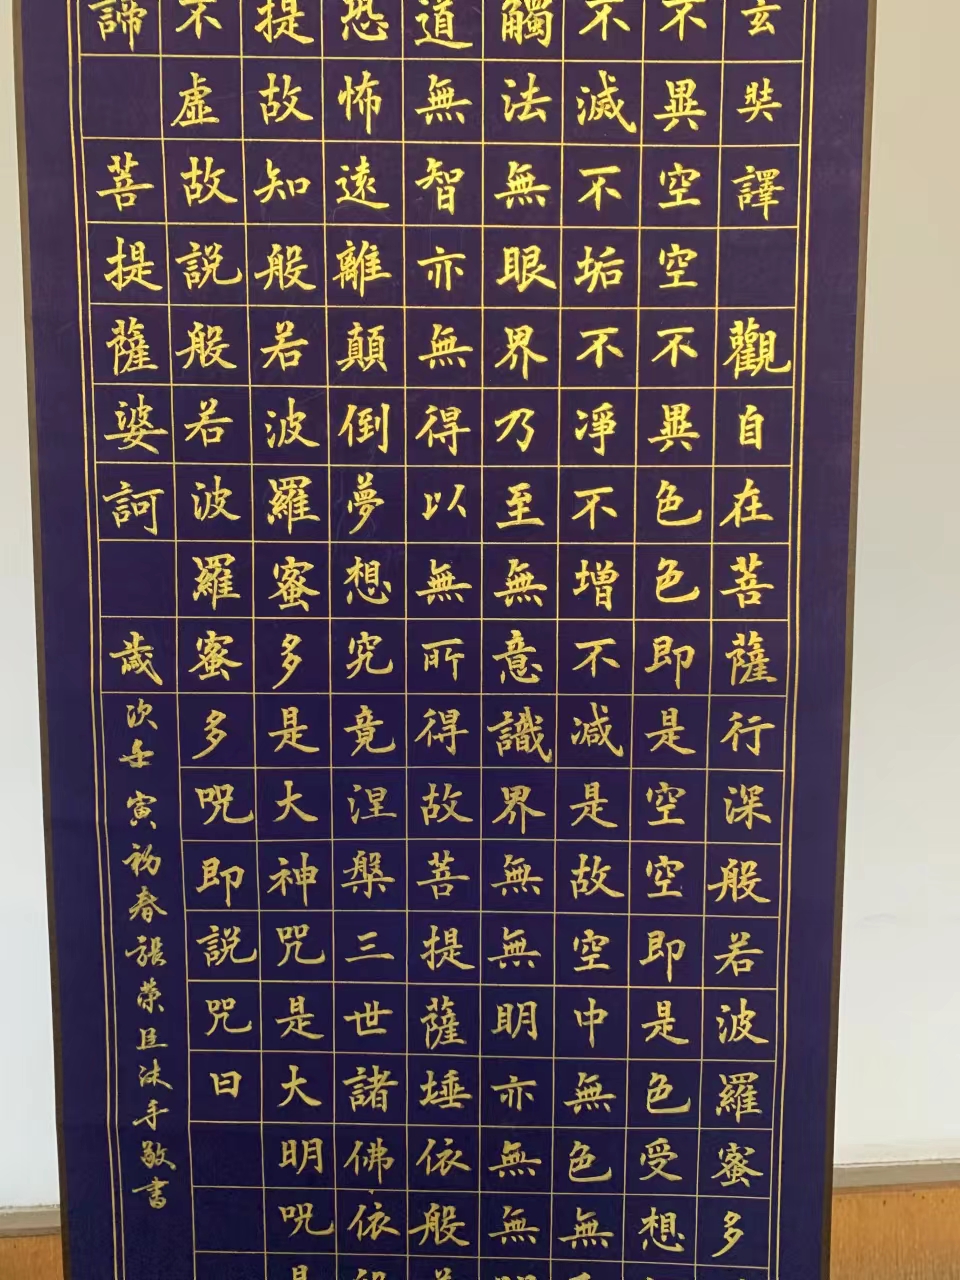 玄奘譯 觀自在菩薩行深般若波羅蜜多
不異空空不異色色即是空空即是色受想
不滅不垢不凈不增不減是故空中無色無
觸法無眼界乃至無意識界無無明亦無無
道無智亦無得以無所得故菩提薩埵依般
恐怖遠離顛倒夢想究竟涅槃三世諸佛依
提故知般若波羅蜜多是大神咒是大明咒
不虛故說般若波羅蜜多咒即說咒曰
諦 菩提薩婆訶 歲次壬寅初春張榮臣沐手敬書